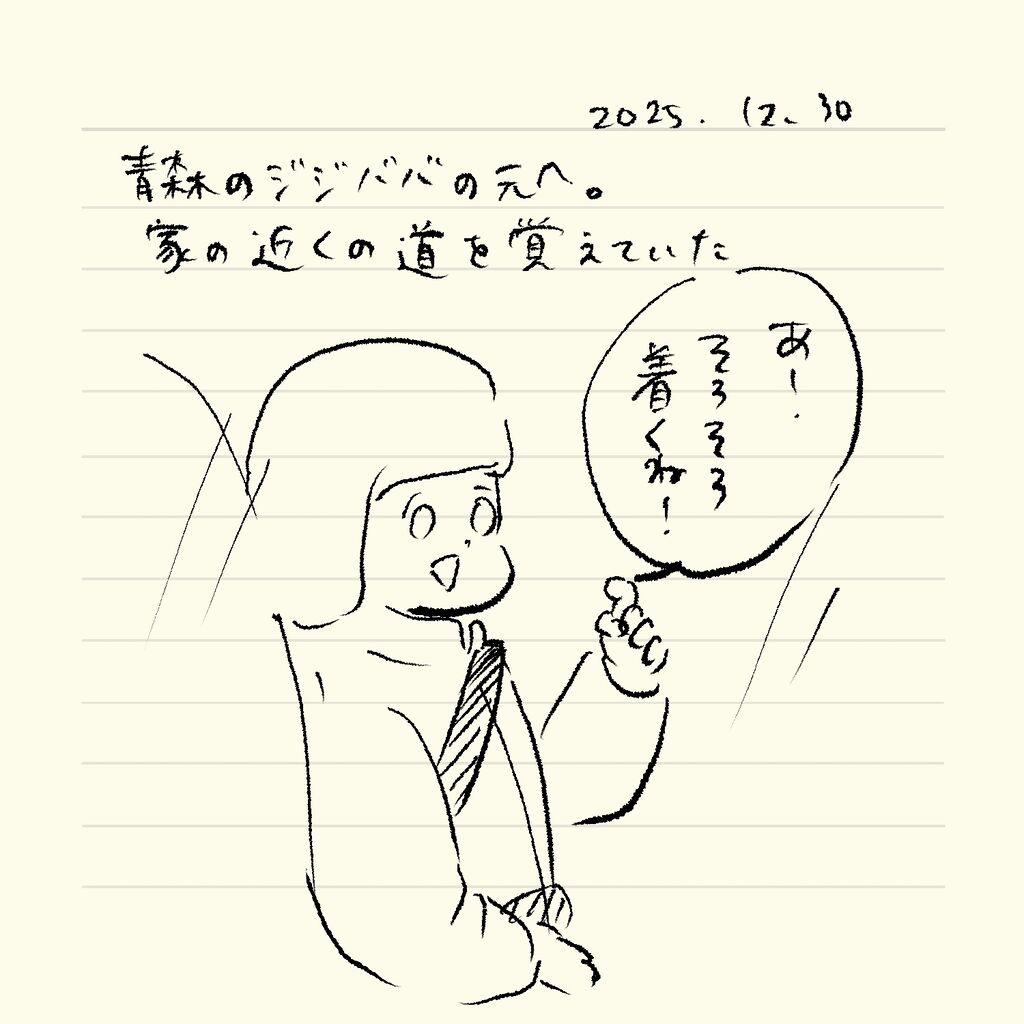 2025.12.30
青森のジジババの元へ。
家の近くの道を覚えていた
あー!
そろそろ
着くね!